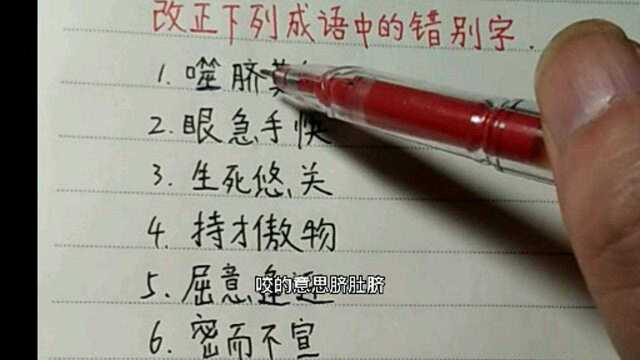 改正下列成语中的错别字.
1. 噬脐
2. 眼急手快
3. 生死悠关
4. 持才傲物
咬的意思脐肚脐
5. 屈意逢
6. 密而不宣